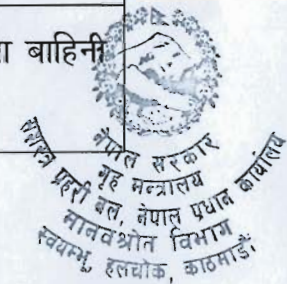 बाहिनी
नेपाल सरकार
गृह मन्त्रालय
सशस्त्र प्रहरी बल, नेपाल प्रधान कार्यालय
मानवश्रोत विभाग
स्वयम्भू, हलचोक, काठमाडौं